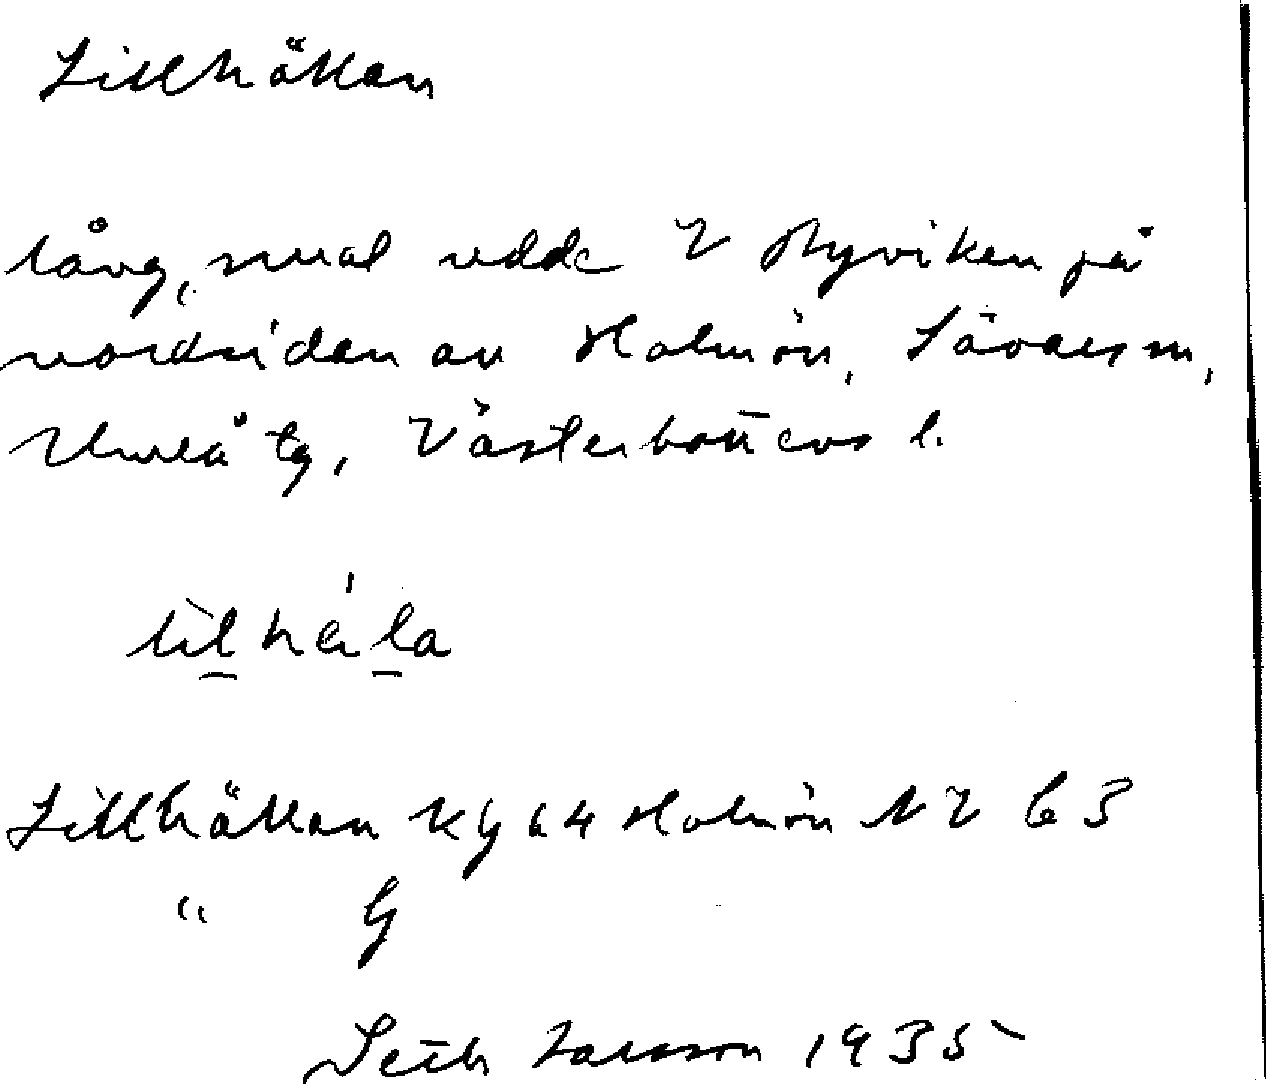 Lillhällan
lång, smal udde V Byviken på
nordsidan av Holmön, Sävars sn,
Umeå tg, Västerbottens l.
Lillhällan Kg 64 Holmön NV 63
" G
Seth Larsson 1935